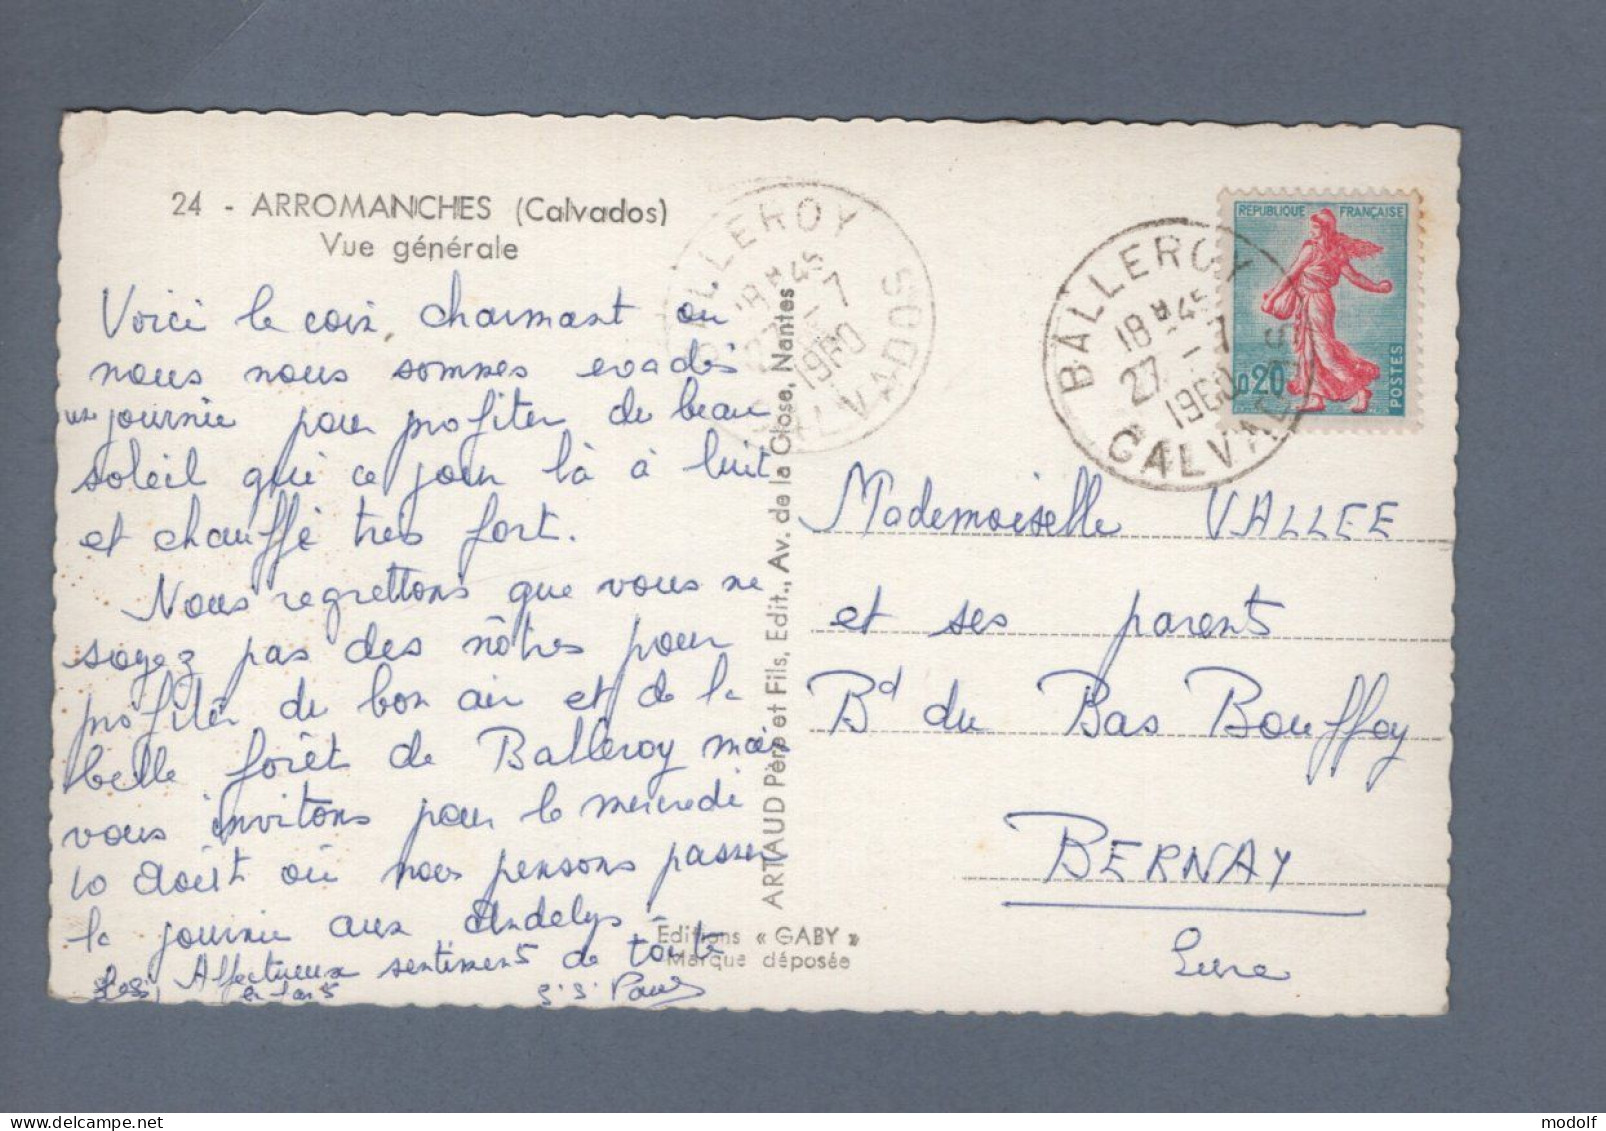 24 - ARROMANCHES (Calvados)
Vue générale
Voici le coin charmant ou
nous nous sommes evadés
une journée pour profiter de beau
soleil qui ce jour là à luit
et chauffé tres fort.
Nous regrettons que vous ne
soyez pas des nôtres pour
profiter de bon air et de la
belle forêt de Balleroy mais
vous invitons pour le mercredi
10 Août où nous pensons passer
la journée aux Andelys
Affectueux sentiments de toute
BALLEROY
18 H 45
27 - 7
1960
CALVADOS
ARTAUD Père et Fils, Edit., Av. de la Close, Nantes
Editions « GABY »
Marque déposée
BALLEROY
18 H 45
27 - 7
1960
CALVADOS
REPUBLIQUE FRANÇAISE
0,20
POSTES
Mademoiselle VALLEE
et ses parents
Bd du Bas Bouffey
BERNAY
Eure
modolf